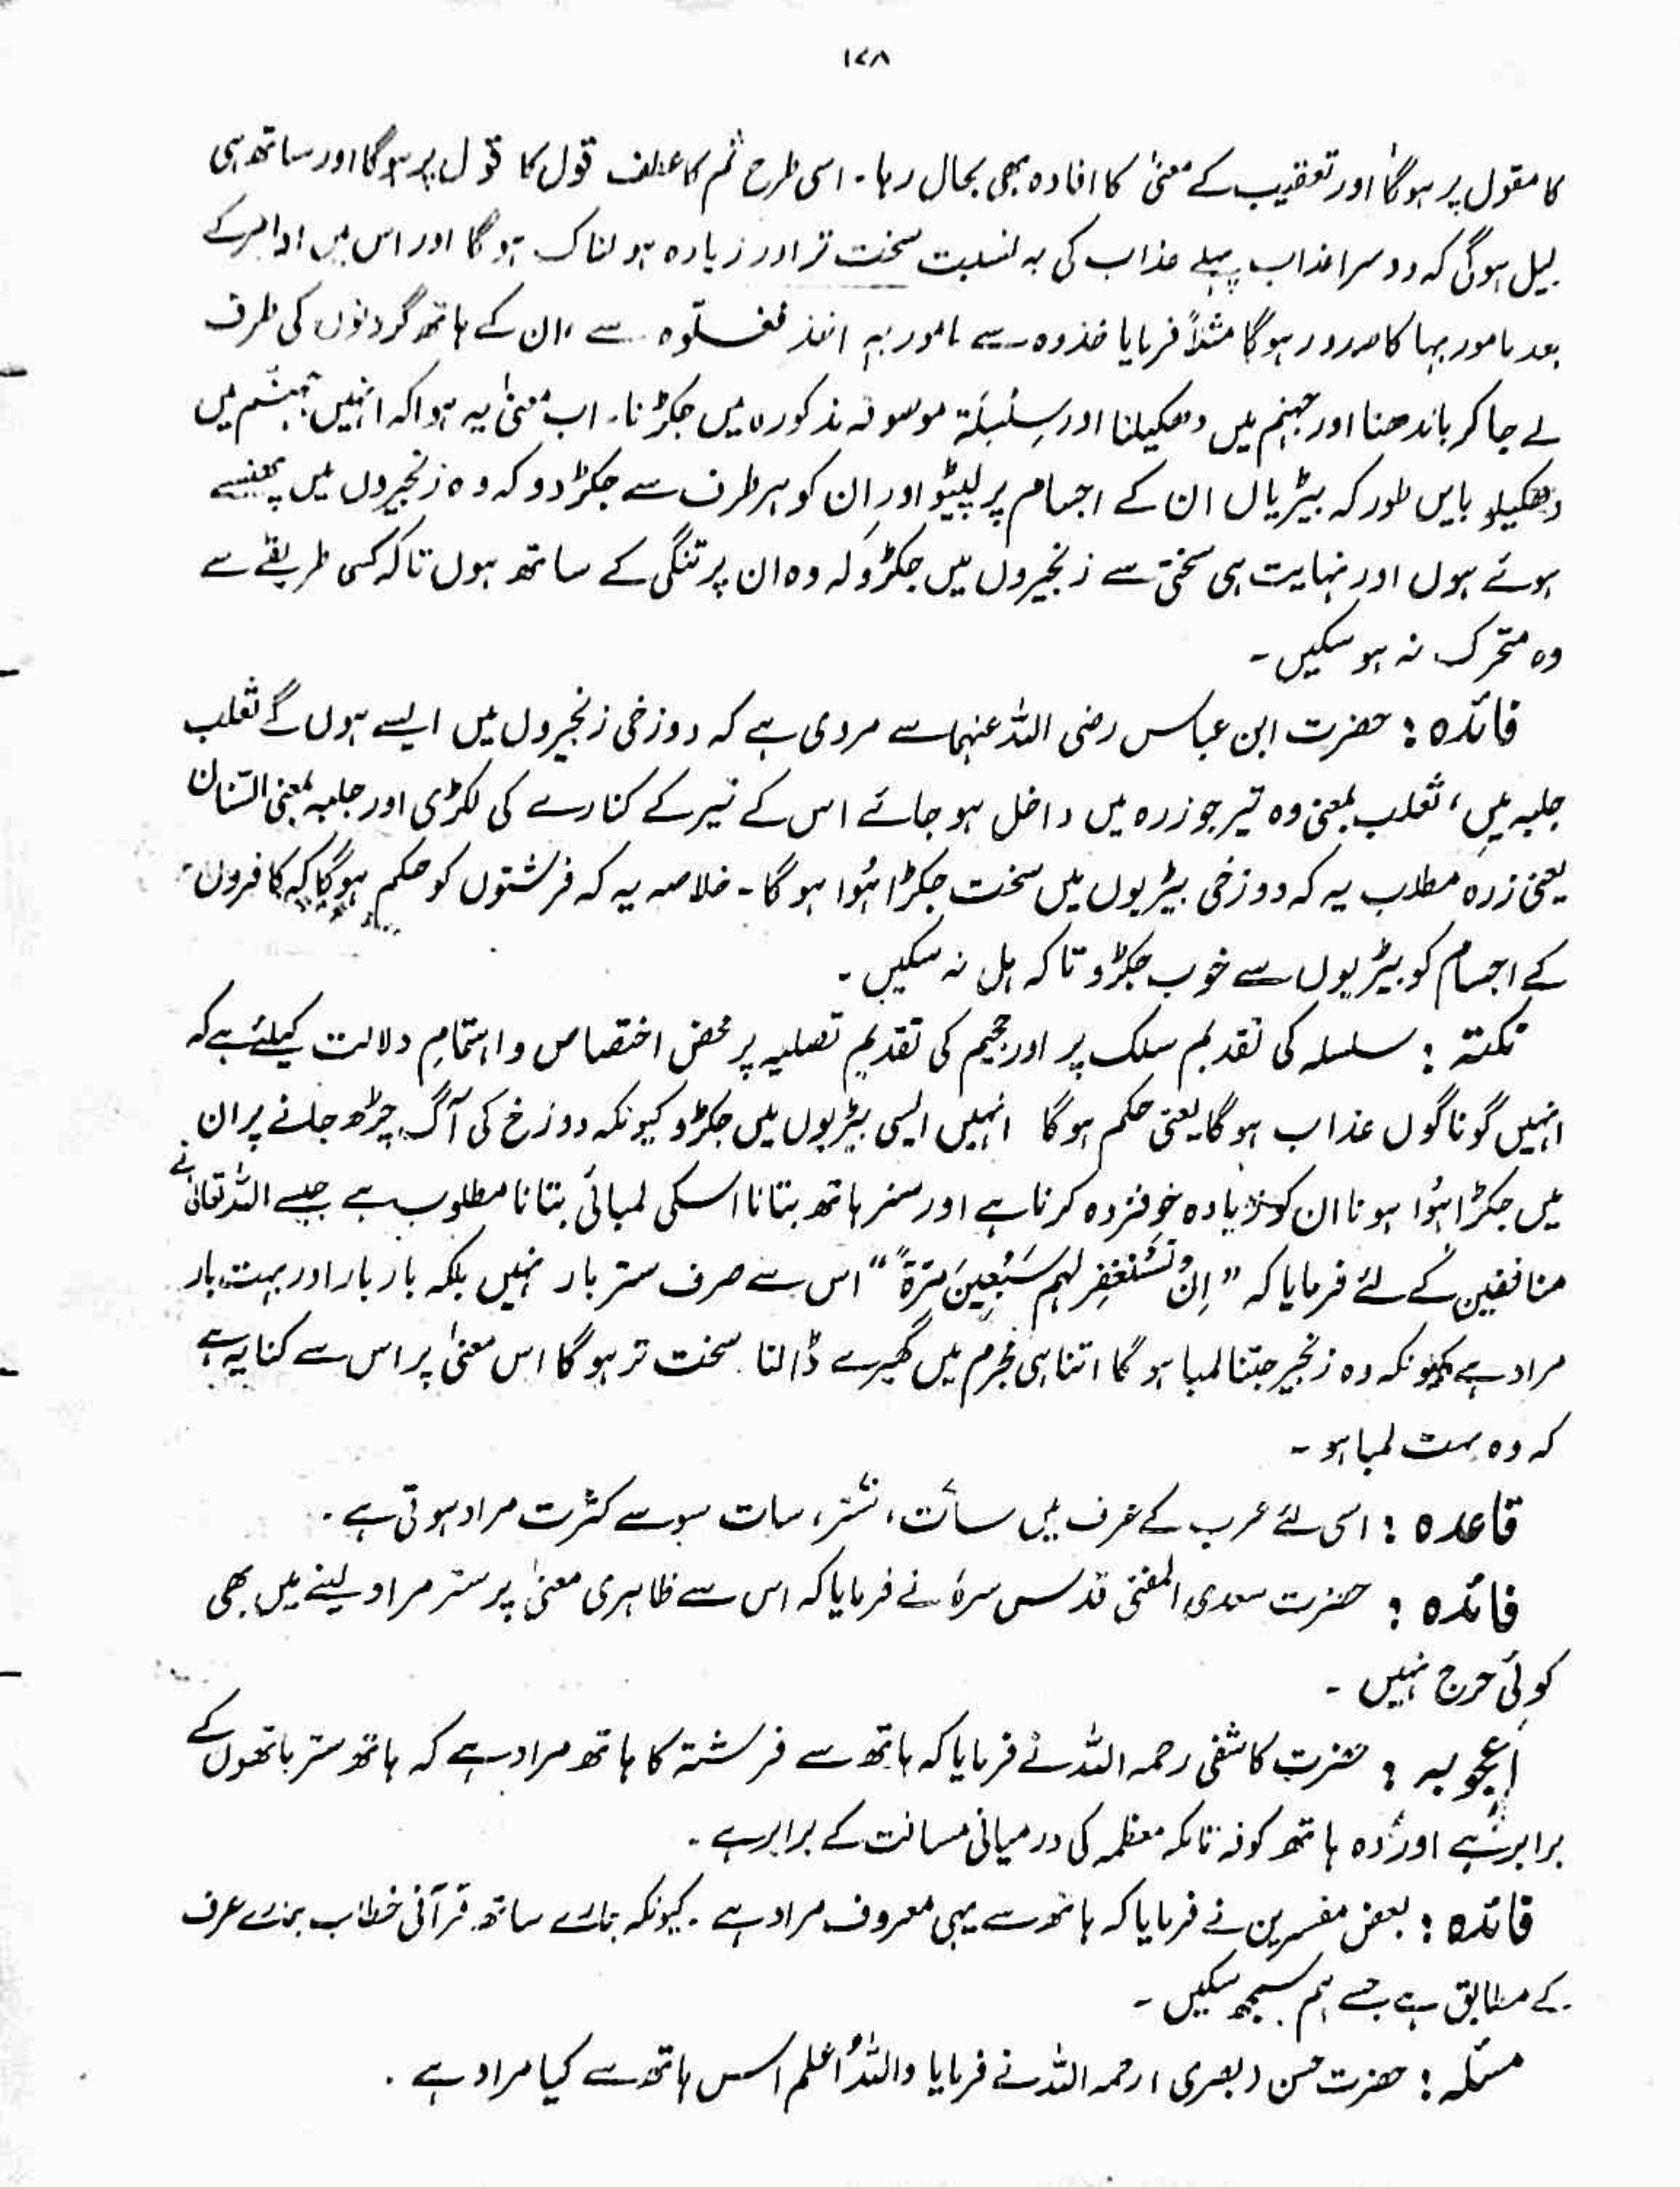 ۱۷۸
کا مقول پر ہوگا اور تعقیب کے معنیٰ کا افادہ بھی بحال رہا۔ اسی طرح ثم کا عطف قول کا قول پر ہوگا اور ساتھ ہی
لیل ہوگی کہ دوسرا عذاب پہلے عذاب کی بہ نسبت سخت تر اور زیادہ ہولناک ہوگا اور اس میں اوامر کے
بعد مامور بہا کا صدور ہوگا مثلاً فرمایا خذوہ سے مامور بہ اخذ فغلّوہ سے ان کے ہاتھ گردنوں کی طرف
لے جا کر باندھنا اور جہنم میں دھکیلنا اور سِلْسِلَۃ موصوفہ مذکورہ میں جکڑنا۔ اب معنیٰ یہ ہوا کہ انہیں جہنّم میں
دھکیلو بایں طور کہ بیڑیاں ان کے اجسام پر لپیٹو اور ان کو ہر طرف سے جکڑ دو کہ وہ زنجیروں میں پھنسے
ہوئے ہوں اور نہایت ہی سختی سے زنجیروں میں جکڑو کہ وہ ان پر تنگی کے ساتھ ہوں تاکہ کسی طریقے سے
وہ متحرک نہ ہو سکیں۔
فائدہ : حضرت ابن عباس رضی اللہ عنہما سے مروی ہے کہ دوزخی زنجیروں میں ایسے ہوں گے ثعلب
جلبہ میں، ثعلب بمعنی وہ تیر جو زرہ میں داخل ہو جائے اس کے تیر کے کنارے کی لکڑی اور جلبہ بمعنی السّنان
یعنی زرہ مطلب یہ کہ دوزخی بیڑیوں میں سخت جکڑا ہُوا ہوگا۔ خلاصہ یہ کہ فرشتوں کو حکم ہوگا کہ کافروں
کے اجسام کو بیڑیوں سے خوب جکڑو تاکہ ہل نہ سکیں۔
نکتہ : سلسلہ کی تقدیم سلک پر اور جحیم کی تقدیم تصلیہ پر محض اختصاص و اہتمامِ دلالت کیلئے ہے کہ
انہیں گوناگوں عذاب ہوگا یعنی حکم ہوگا انہیں ایسی بیڑیوں میں جکڑو کیونکہ دوزخ کی آگ چڑھ جانے پر ان
میں جکڑا ہُوا ہونا ان کو زیادہ خوفزدہ کرنا ہے اور ستر ہاتھ بتانا اسکی لمبائی بتانا مطلوب ہے جیسے اللہ تعالیٰ نے
منافقین کے لئے فرمایا کہ ”اِنْ تَسْتَغْفِر لہم سَبْعِینَ مَرّۃً“ اس سے صرف ستر بار نہیں بلکہ بار بار اور بہت بار
مراد ہے کیونکہ وہ زنجیر جتنا لمبا ہوگا اتنا ہی مجرم میں گھیرے ڈالنا سخت تر ہوگا اس معنیٰ پر اس سے کنایہ ہے
کہ وہ بہت لمبا ہو۔
قاعدہ : اسی لئے عرب کے عرف میں سات، ستر، سات سو سے کثرت مراد ہوتی ہے۔
فائدہ : حضرت سعدی المفتی قدس سرہٗ نے فرمایا کہ اس سے ظاہری معنیٰ پر ستر مراد لینے میں بھی
کوئی حرج نہیں۔
اُعجوبہ : حضرت کاشفی رحمہ اللہ نے فرمایا کہ ہاتھ سے فرشتہ کا ہاتھ مراد ہے کہ ہاتھ ستر ہاتھوں کے
برابر ہے اور وہ ہاتھ کوفہ تا مکہ معظمہ کی درمیانی مسافت کے برابر ہے۔
فائدہ : بعض مفسرین نے فرمایا کہ ہاتھ سے یہی معروف مراد ہے۔ کیونکہ ہمارے ساتھ قرآنی خطاب ہمارے عرف
کے مطابق ہے جسے ہم سمجھ سکیں۔
مسئلہ : حضرت حسن (بصری) رحمہ اللہ نے فرمایا واللہُ اعلم اس ہاتھ سے کیا مراد ہے۔